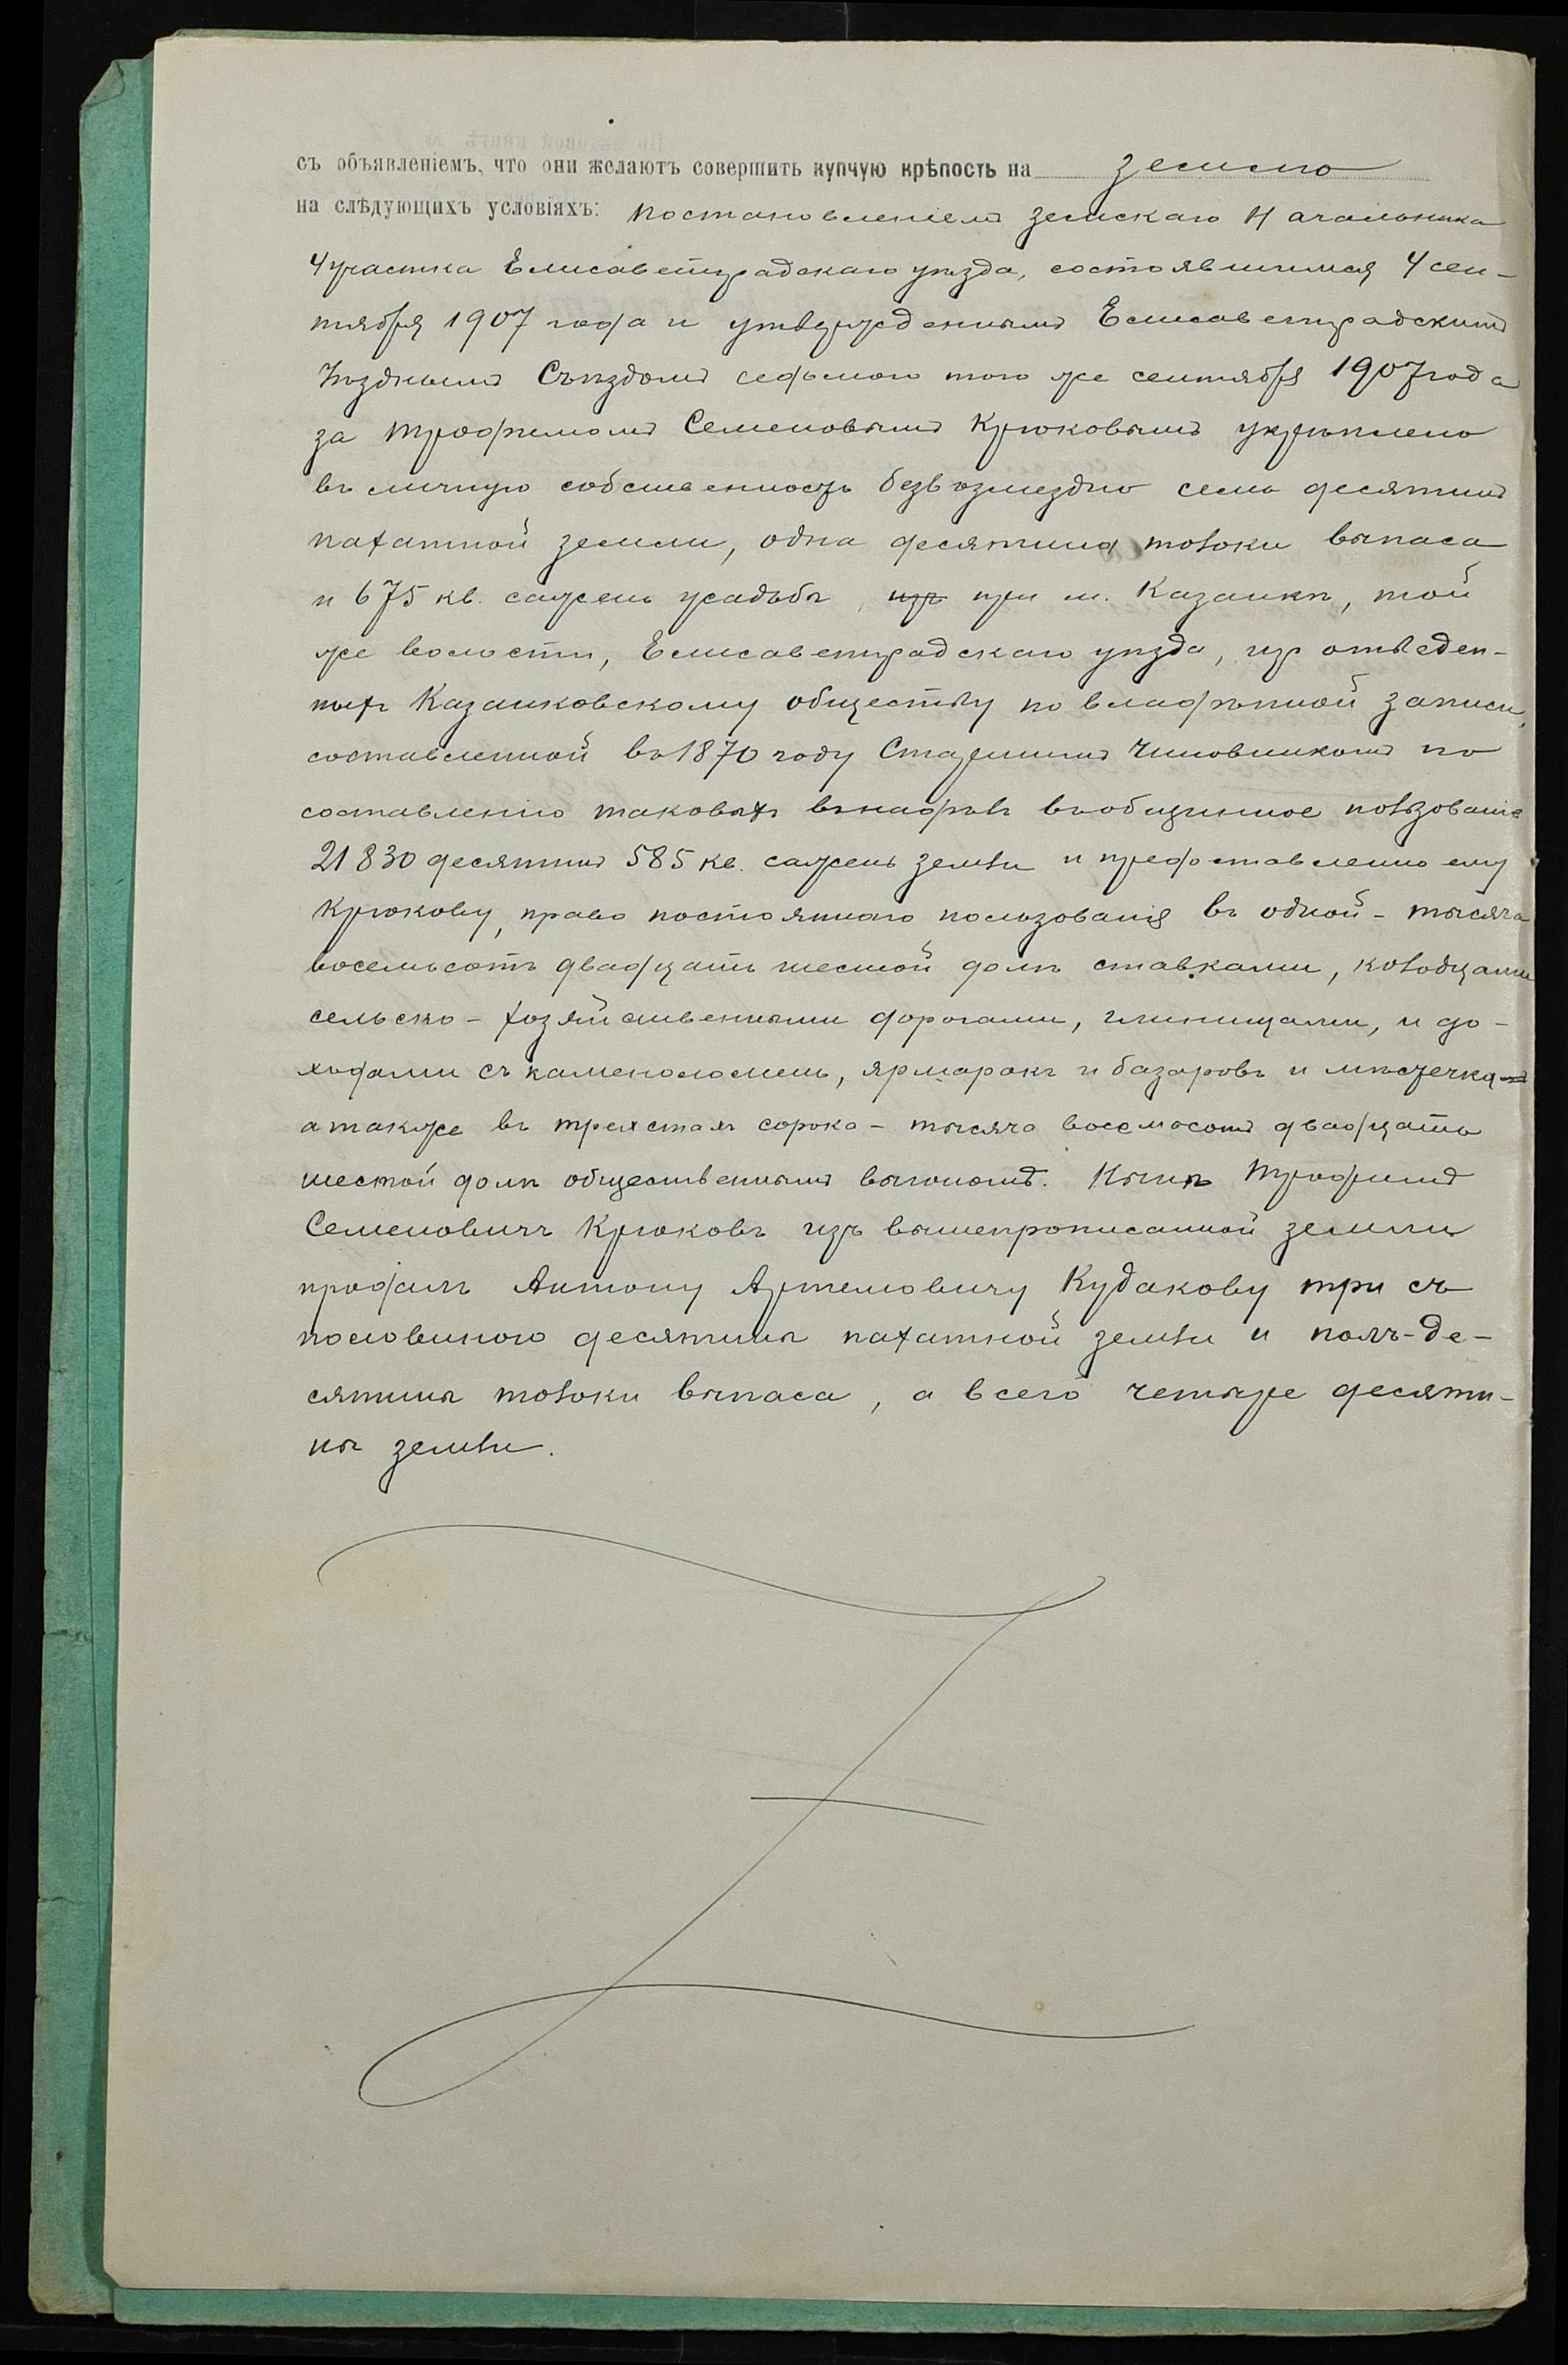 съ объявленіемъ, что они желаютъ совершить купчую крѣпость на землю
на слѣдующихъ условіяхъ: Постановленіемъ Земскаго Начальника
4 участка Елисаветградскаго уѣзда, состоявшимся 4 сен-
тября 1907 года и утвержденнымъ Елисаветградскимъ
Уѣзднымъ Съѣздомъ седьмого того же сентября 1907 года
за Трофимомъ Семеновымъ Крюковымъ укрѣплено
въ личную собственность безвозмездно семь десятинъ
пахатной земли, одна десятина толоки выпаса
и 675 кв. сажень усадьбы, изъ при м. Казанкѣ, той
же волости, Елисаветградскаго уѣзда, изъ отведен-
ныхъ Казанковскому обществу по владѣнной записи,
составленной въ 1870 году Старшимъ Чиновникомъ по
составленію таковыхъ въ надѣлъ въ общинное пользованіе
21830 десятинъ 585 кв. сажень земли и предоставлено ему
Крюкову, право постояннаго пользованія въ одной - тысяча
восемьсотъ двадцать шестой долѣ ставками, колодцами
сельско - хозяйственными дорогами, глинищами, и до-
ходами съ каменоломень, ярмарокъ и базаровъ и мѣстечка
а также въ трехстахъ сорока - тысяча восемьсотъ двадцать
шестой долѣ общественнымъ выгономъ. Нынѣ Трофимъ
Семеновичъ Крюковъ изъ вышепрописанной земли
продалъ Антону Артемовичу Кудакову три съ
половиною десятины пахатной земли и полъ-де-
сятины толоки выпаса, а всего четыре десяти-
ны земли.